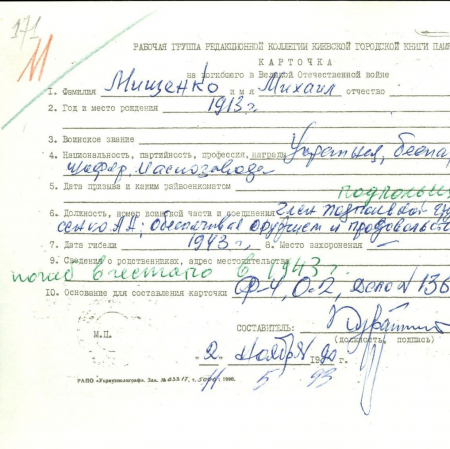 171
М
РАБОЧАЯ ГРУППА РЕДАКЦИОННОЙ КОЛЛЕГИИ КИЕВСКОЙ ГОРОДСКОЙ КНИГИ ПАМ
КАРТОЧКА
на погибшего в Великой Отечественной войне
1. Фамилия Мищенко имя Михаил отчество
2. Год и место рождения 1913 г.
3. Воинское звание
4. Национальность, партийность, профессия, награды Украинец, беспа
шофер маслозавода
5. Дата призыва и каким райвоенкоматом
подполь
6. Должность, номер воинской части и соединения Член подпольной
сенко А.А; обеспечивал оружием и продовольст
7. Дата гибели 1943 г. 8. Место захоронения —
9. Сведения о родственниках, адрес местожительства
погиб в гестапо в 1943 г.
10. Основание для составления карточки Ф-4, О-2, дело № 136
СОСТАВИТЕЛЬ:
(должность, подпись)
М.П.
"2" ноября 1990
РАПО «Укрвузполиграф». Зак. т. 5000. 1990.
11 5 93